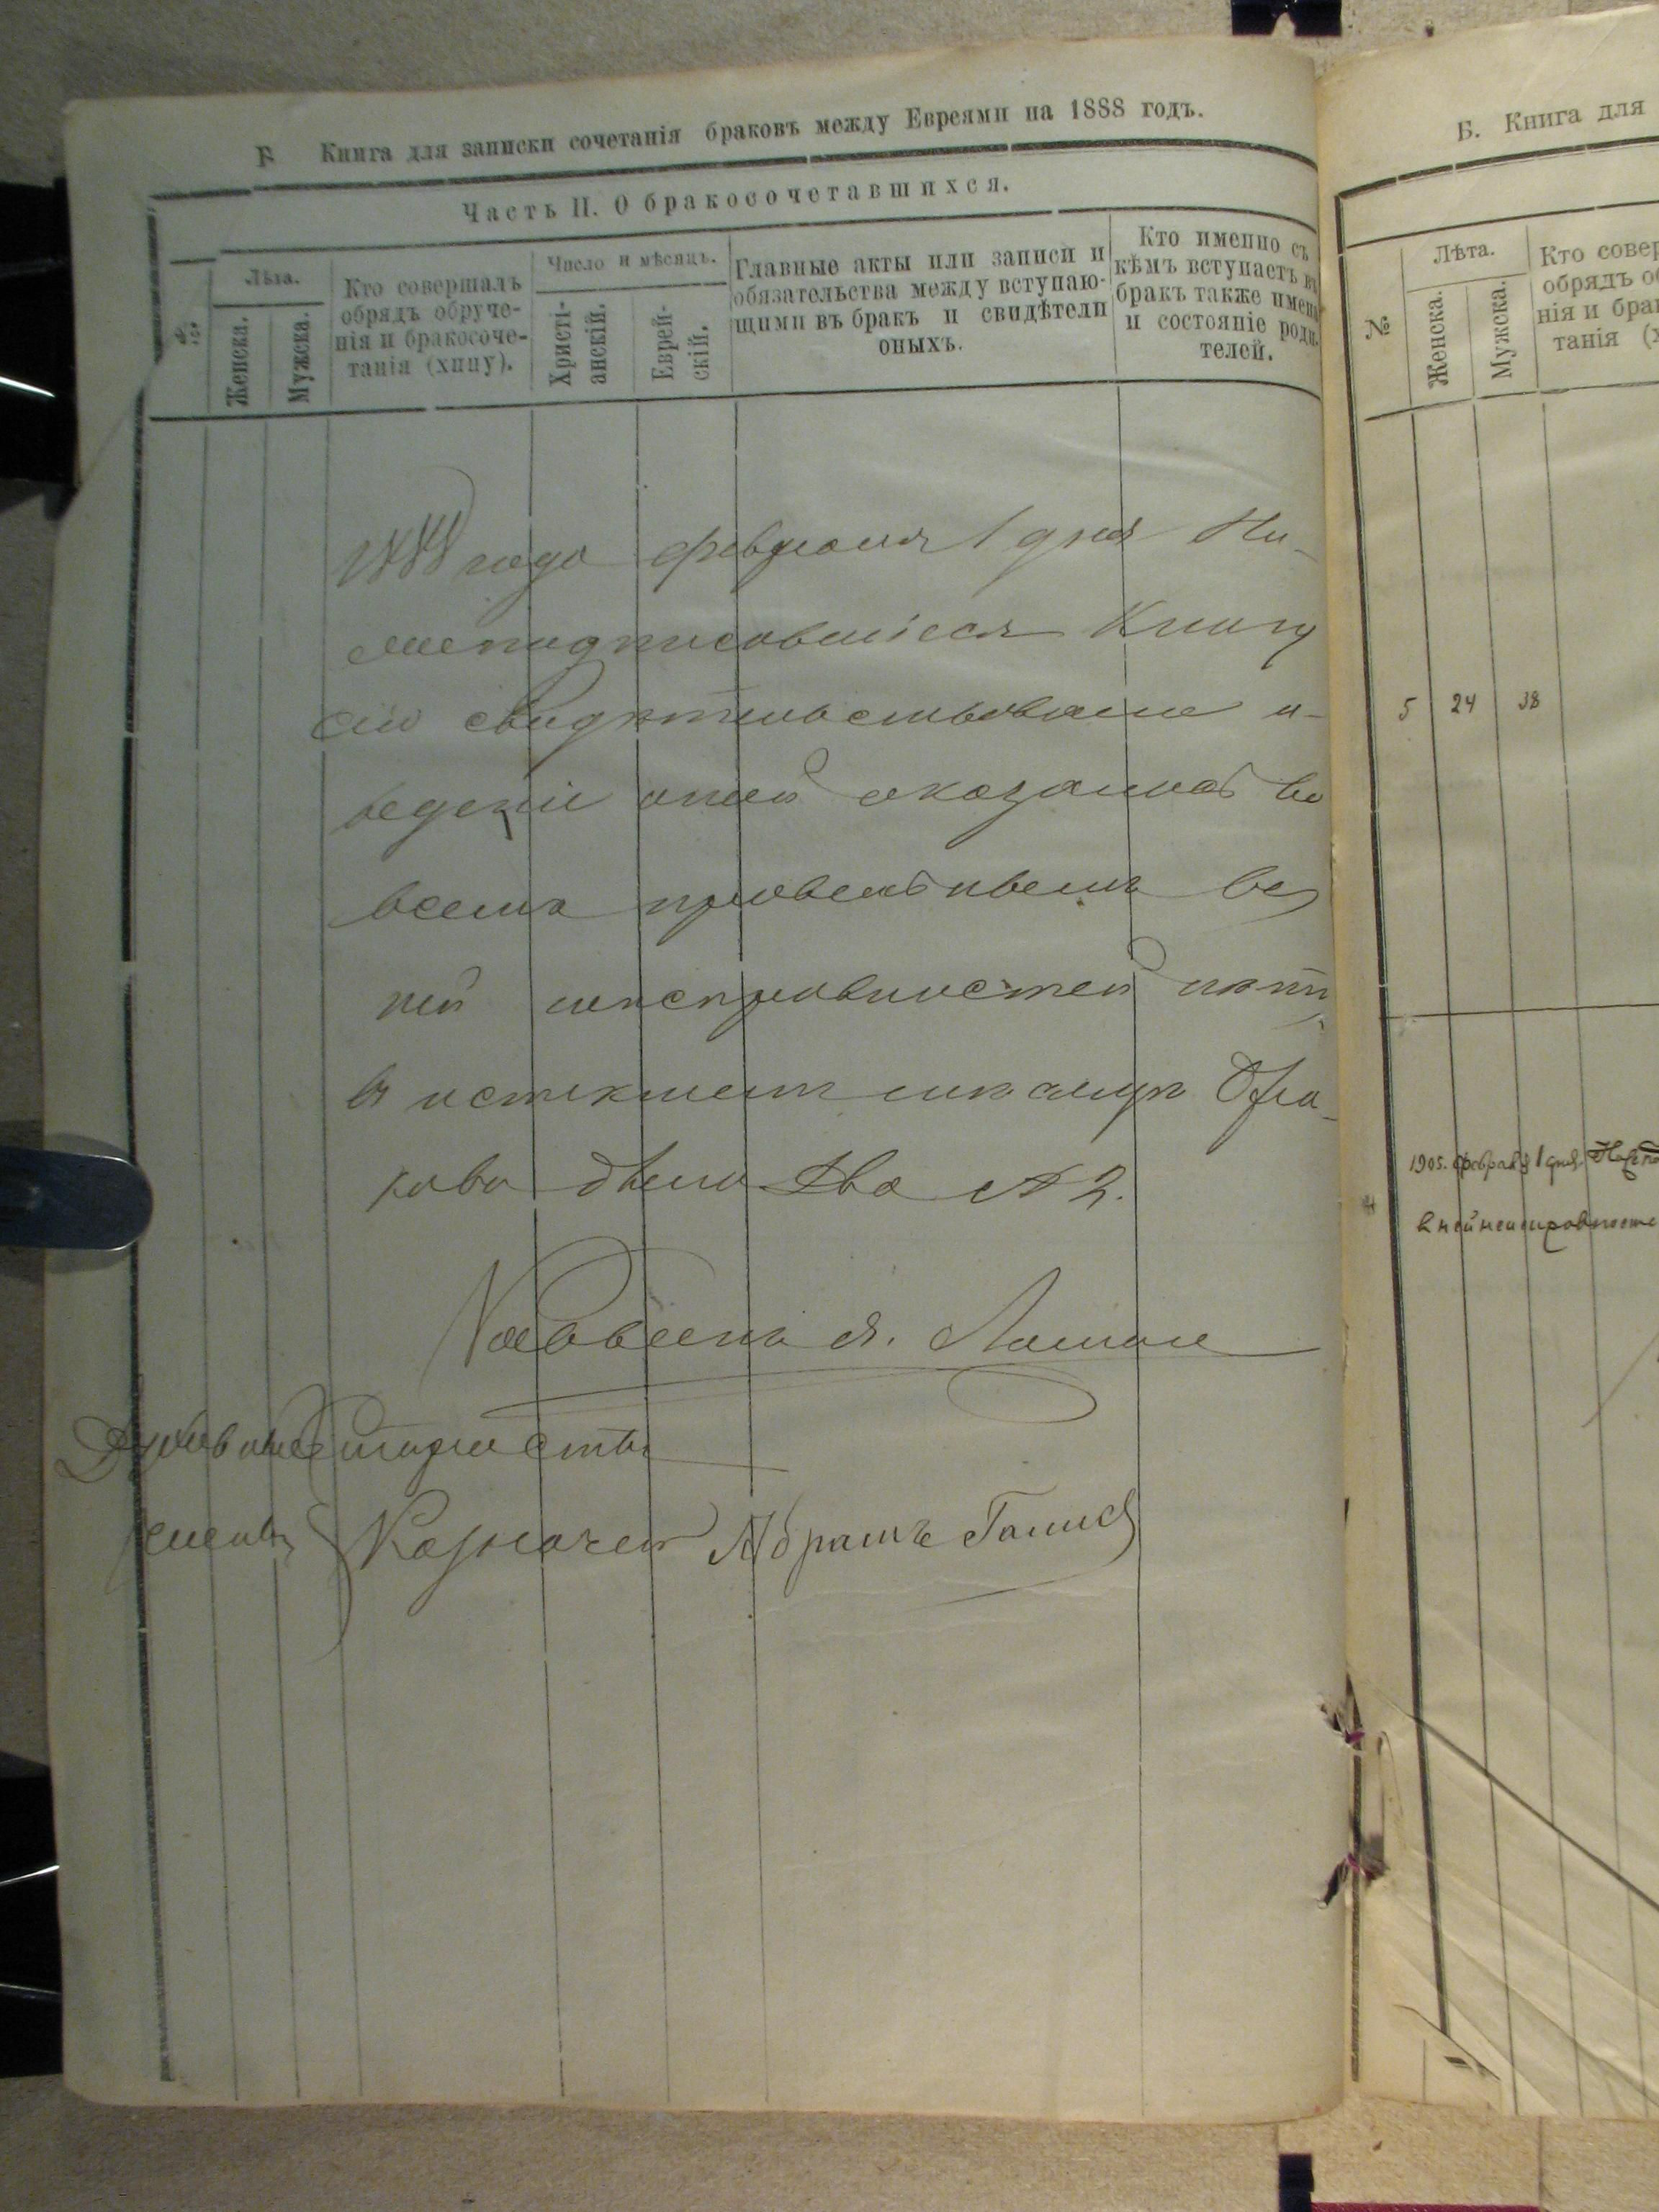 Б Книга для записки сочетанія браковъ между Евреями на 1888 годъ.
Часть II. О бракосочетавшихся.
№
Лѣта.
Женска.
Мужска.
Кто совершалъ
обрядъ обруче-
нія и бракосоче-
танія (хппу).
Число и мѣсяцъ.
Христі-
анскій.
Еврей-
скій.
Главные акты или записи и
обязательства между вступаю-
щими въ бракъ и свидѣтели
оныхъ.
Кто именно съ
кѣмъ вступаетъ въ
бракъ также имена
и состояніе роди-
телей.
1888 года февраля 1 дня Ни-
жеподписавшіеся Книгу
сію свидѣтельствовали и
веденіе оной оказалось во
всемъ правильнымъ въ
ней неисправностей нѣтъ
въ истекшемъ мѣсяцѣ бра-
ковъ было два № 2.
Раввинъ
Духовное
Казначей Абрамъ
Б. Книга для
№
Лѣта.
Женска.
Мужска.
Кто совер
обрядъ об
нія и брак
танія (х
5 24 38
1905. февраля 1 дня
в ней неисправносте